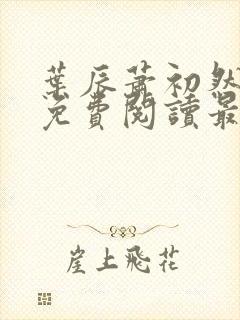 葉辰蕭初然
免費閱讀最
崖上飛花